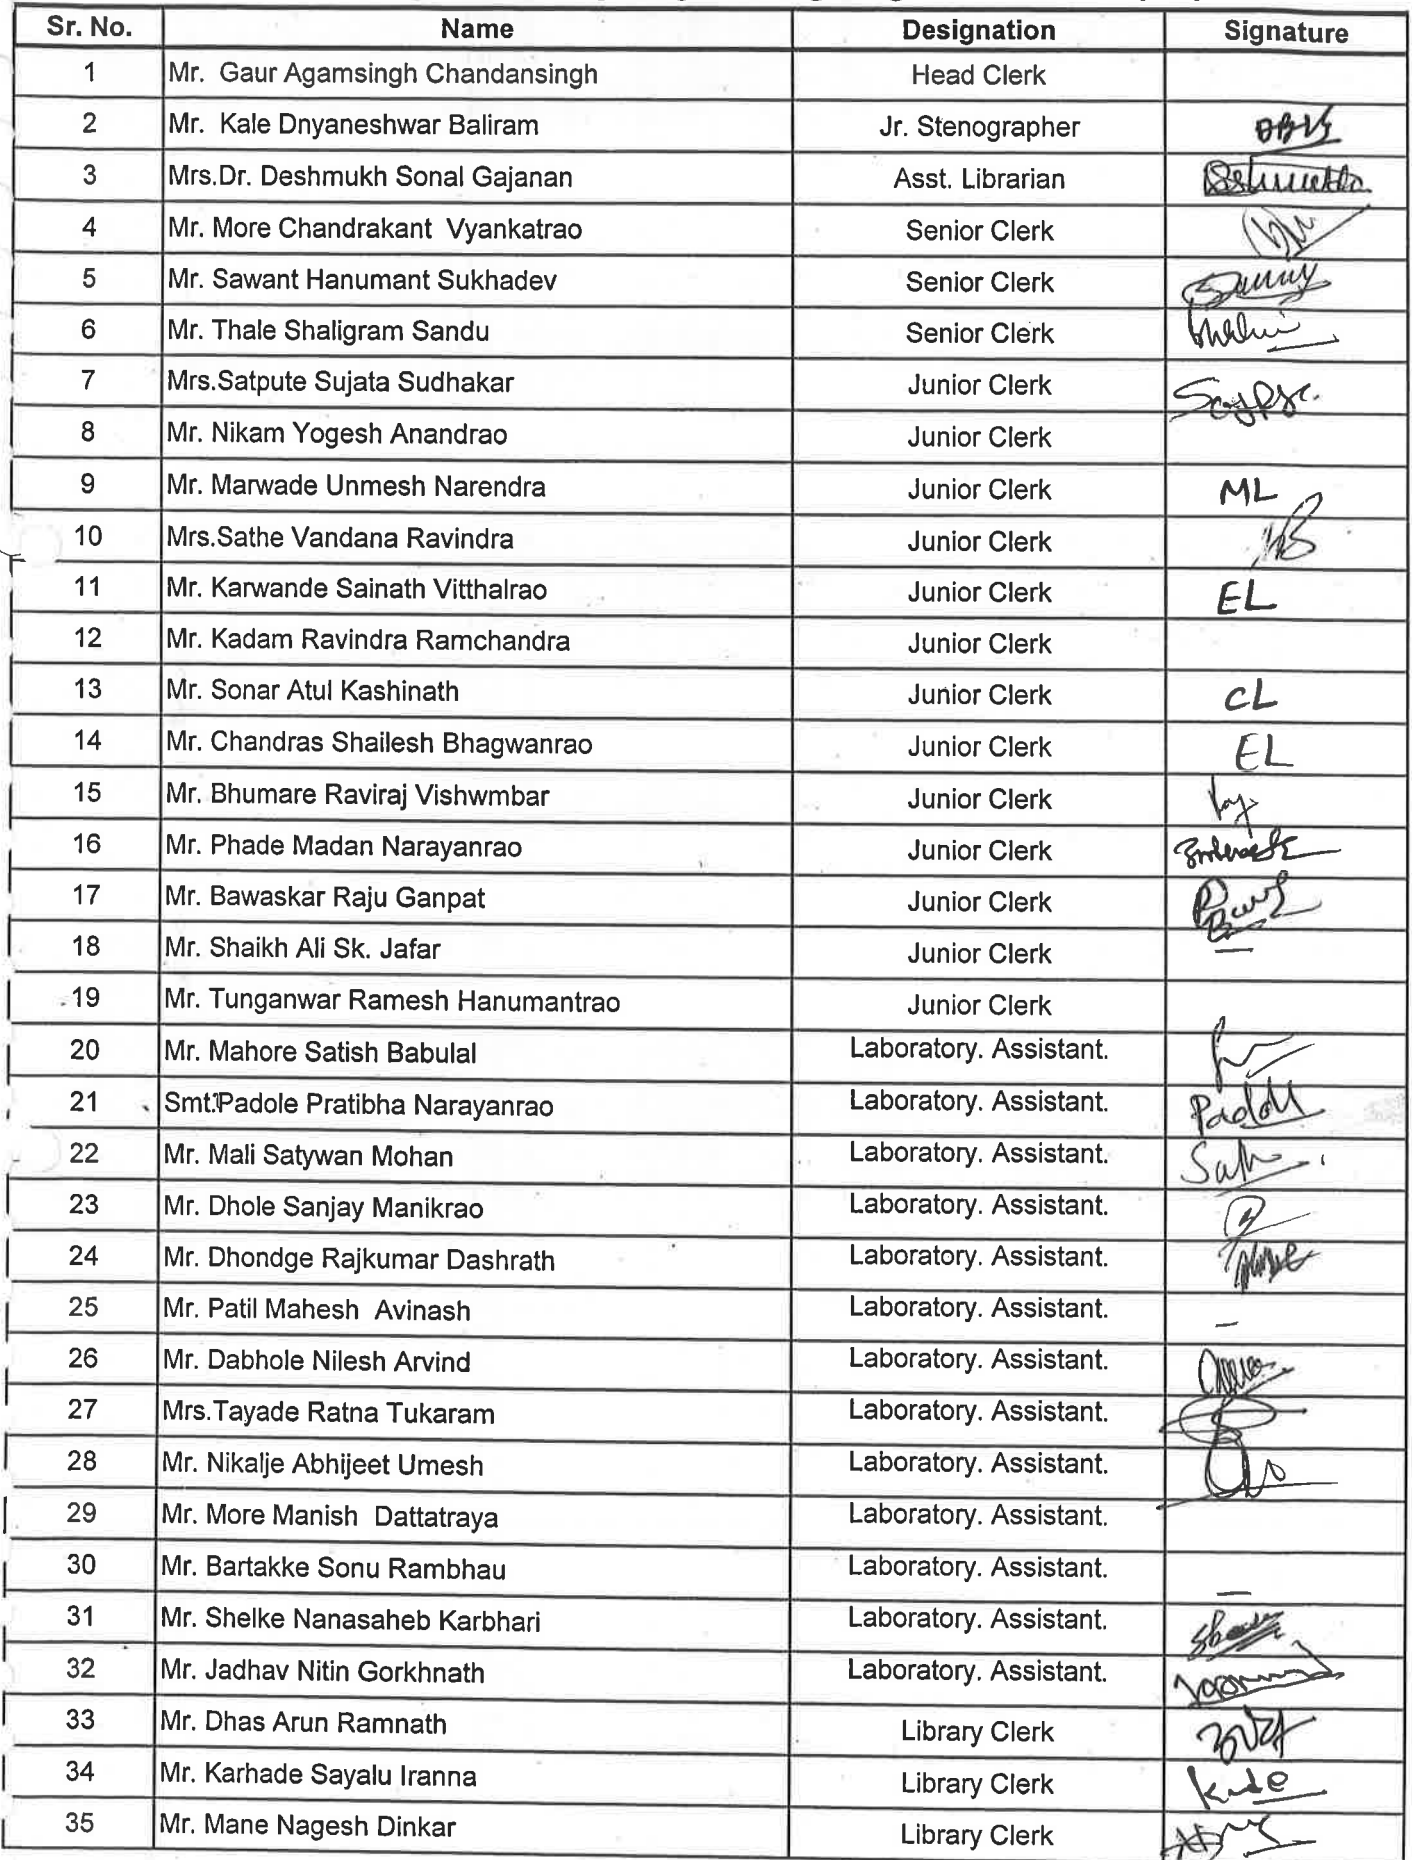 Sr. No. Name Designation Signature
1 Mr. Gaur Agamsingh Chandansingh Head Clerk
2 Mr. Kale Dnyaneshwar Baliram Jr. Stenographer
3 Mrs.Dr. Deshmukh Sonal Gajanan Asst. Librarian
4 Mr. More Chandrakant Vyankatrao Senior Clerk
5 Mr. Sawant Hanumant Sukhadev Senior Clerk
6 Mr. Thale Shaligram Sandu Senior Clerk
7 Mrs.Satpute Sujata Sudhakar Junior Clerk
8 Mr. Nikam Yogesh Anandrao Junior Clerk
9 Mr. Marwade Unmesh Narendra Junior Clerk ML
10 Mrs.Sathe Vandana Ravindra Junior Clerk
11 Mr. Karwande Sainath Vitthalrao Junior Clerk EL
12 Mr. Kadam Ravindra Ramchandra Junior Clerk
13 Mr. Sonar Atul Kashinath Junior Clerk CL
14 Mr. Chandras Shailesh Bhagwanrao Junior Clerk EL
15 Mr. Bhumare Raviraj Vishwmbar Junior Clerk
16 Mr. Phade Madan Narayanrao Junior Clerk
17 Mr. Bawaskar Raju Ganpat Junior Clerk
18 Mr. Shaikh Ali Sk. Jafar Junior Clerk —
19 Mr. Tunganwar Ramesh Hanumantrao Junior Clerk
20 Mr. Mahore Satish Babulal Laboratory. Assistant.
21 Smt.Padole Pratibha Narayanrao Laboratory. Assistant.
22 Mr. Mali Satywan Mohan Laboratory. Assistant.
23 Mr. Dhole Sanjay Manikrao Laboratory. Assistant.
24 Mr. Dhondge Rajkumar Dashrath Laboratory. Assistant.
25 Mr. Patil Mahesh Avinash Laboratory. Assistant. —
26 Mr. Dabhole Nilesh Arvind Laboratory. Assistant.
27 Mrs.Tayade Ratna Tukaram Laboratory. Assistant.
28 Mr. Nikalje Abhijeet Umesh Laboratory. Assistant.
29 Mr. More Manish Dattatraya Laboratory. Assistant.
30 Mr. Bartakke Sonu Rambhau Laboratory. Assistant. —
31 Mr. Shelke Nanasaheb Karbhari Laboratory. Assistant.
32 Mr. Jadhav Nitin Gorkhnath Laboratory. Assistant.
33 Mr. Dhas Arun Ramnath Library Clerk
34 Mr. Karhade Sayalu Iranna Library Clerk
35 Mr. Mane Nagesh Dinkar Library Clerk